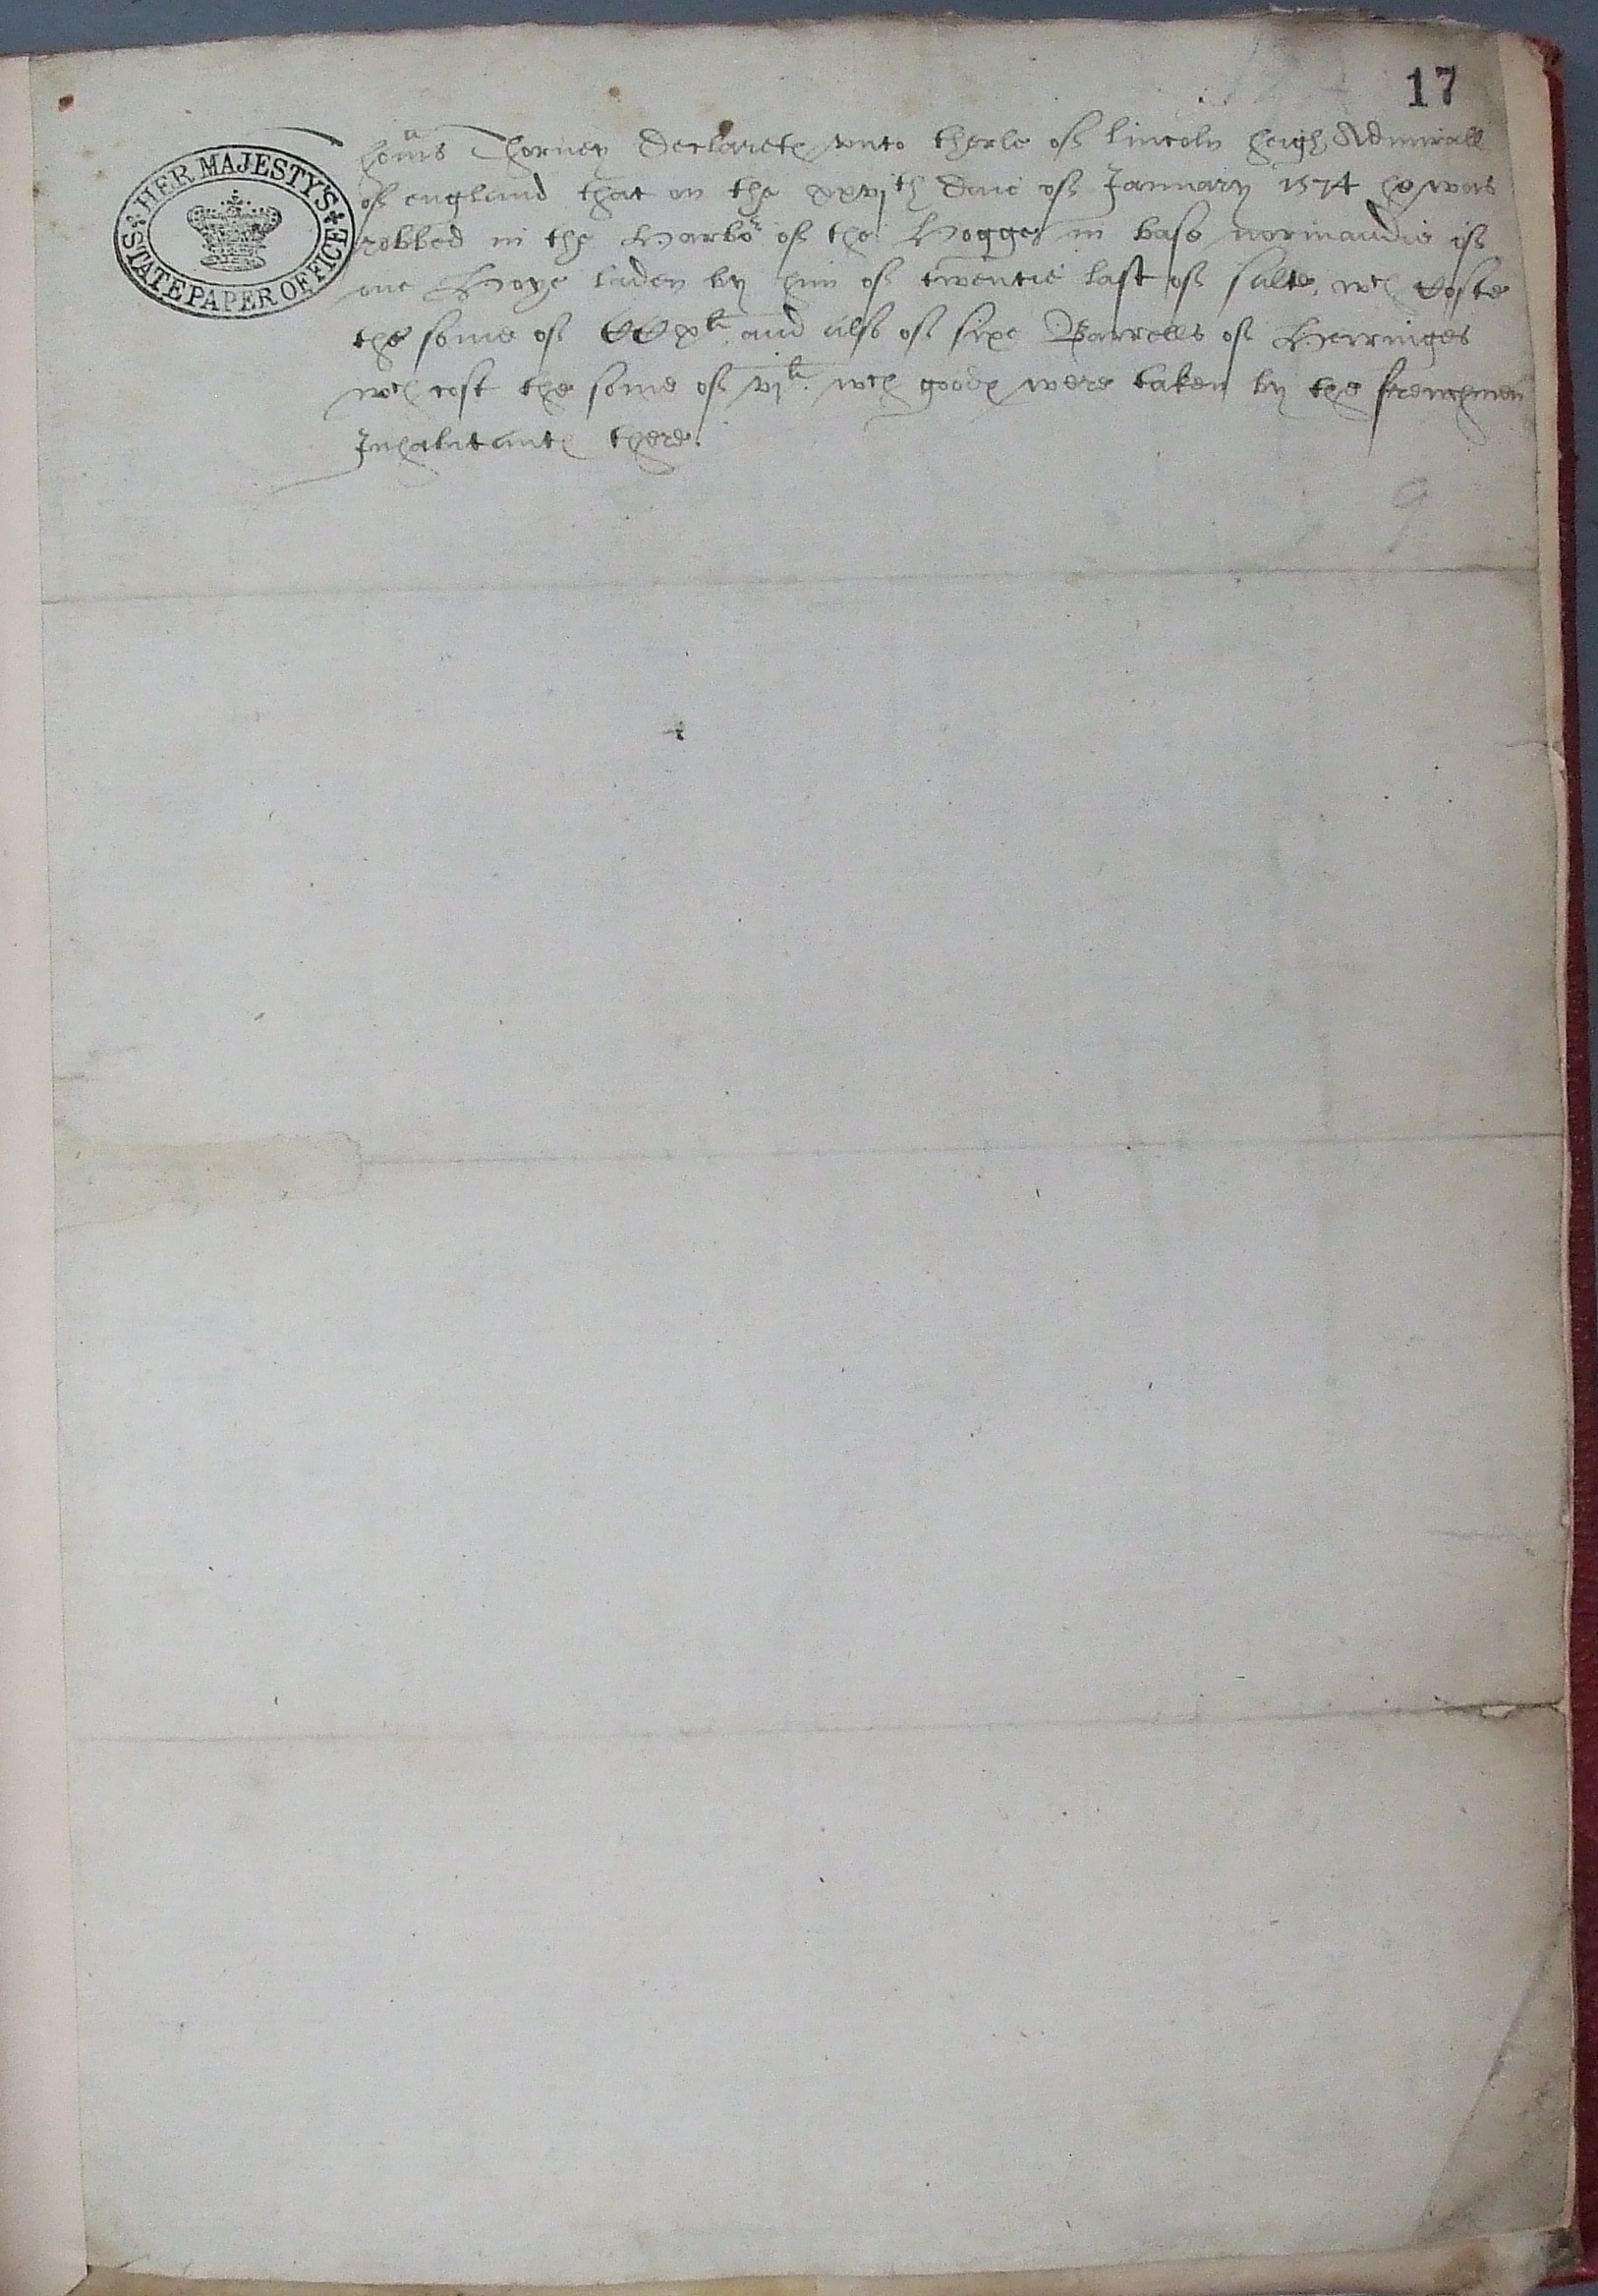 17
HER MAJESTY'S
STATE PAPER OFFICE
Thomas Thorney declareth vnto therle of lincoln heigh Admirall
of england that on the xxvjth daie of January 1574 he was
robbed in the Harbor of the Hogges in base normandie of
one Hoye laden by him of twentie last of salte, wch coste
the some of CCxli and also of sixe Barrells of Herringes
wch cost the some of vjli. wch goodes were taken by the frenchmen
Inhabitantes there.
9